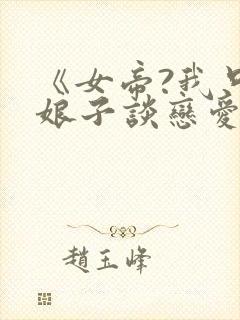 《女帝?我只
娘子談戀愛
趙玉峰